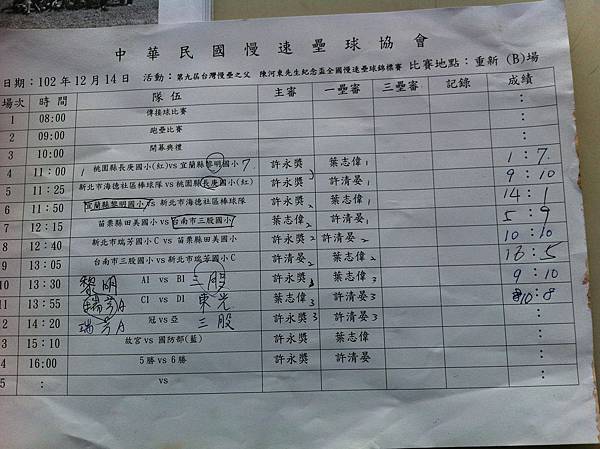 中華民國慢速壘球協會
日期：102 年 12 月 14 日 活動：第九屆台灣慢壘之父 陳河東先生紀念盃全國慢速壘球錦標賽 比賽地點：重新 (B)場
場次 時間 隊伍 主審 一壘審 三壘審 記錄 成績
1 08:00 傳接球比賽 :
2 09:00 跑壘比賽 :
3 10:00 開幕典禮 :
4 11:00 1 桃園縣長庚國小(紅) vs 宜蘭縣黎明國小 7 許永獎 葉志偉 1 1 : 7
5 11:25 新北市海德社區棒球隊 vs 桃園縣長庚國小(紅) 葉志偉 許清晏 1 9 : 10
6 11:50 宜蘭縣黎明國小 vs 新北市海德社區棒球隊 許永獎 葉志偉 14 : 1
7 12:15 苗栗縣田美國小 vs 台南市三股國小 葉志偉 2 許清晏 5 : 9
8 12:40 新北市瑞芳國小 C vs 苗栗縣田美國小 許永獎 2 許清晏 2 10 : 10
9 13:05 台南市三股國小 vs 新北市瑞芳國小 C 許清晏 2 葉志偉 2 13 : 5
10 13:30 黎明 A1 vs B1 三股 許永獎 葉志偉 9 : 10
11 13:55 瑞芳A C1 vs D1 東光 葉志偉 3 許清晏 3 10 : 8
2 14:20 瑞芳A 冠 vs 亞 三股 許永獎 3 許清晏 3 :
3 15:10 故宮 vs 國防部(藍) 許永獎 葉志偉 :
4 16:00 5勝 vs 6勝 許永獎 許清晏 :
5 : vs :